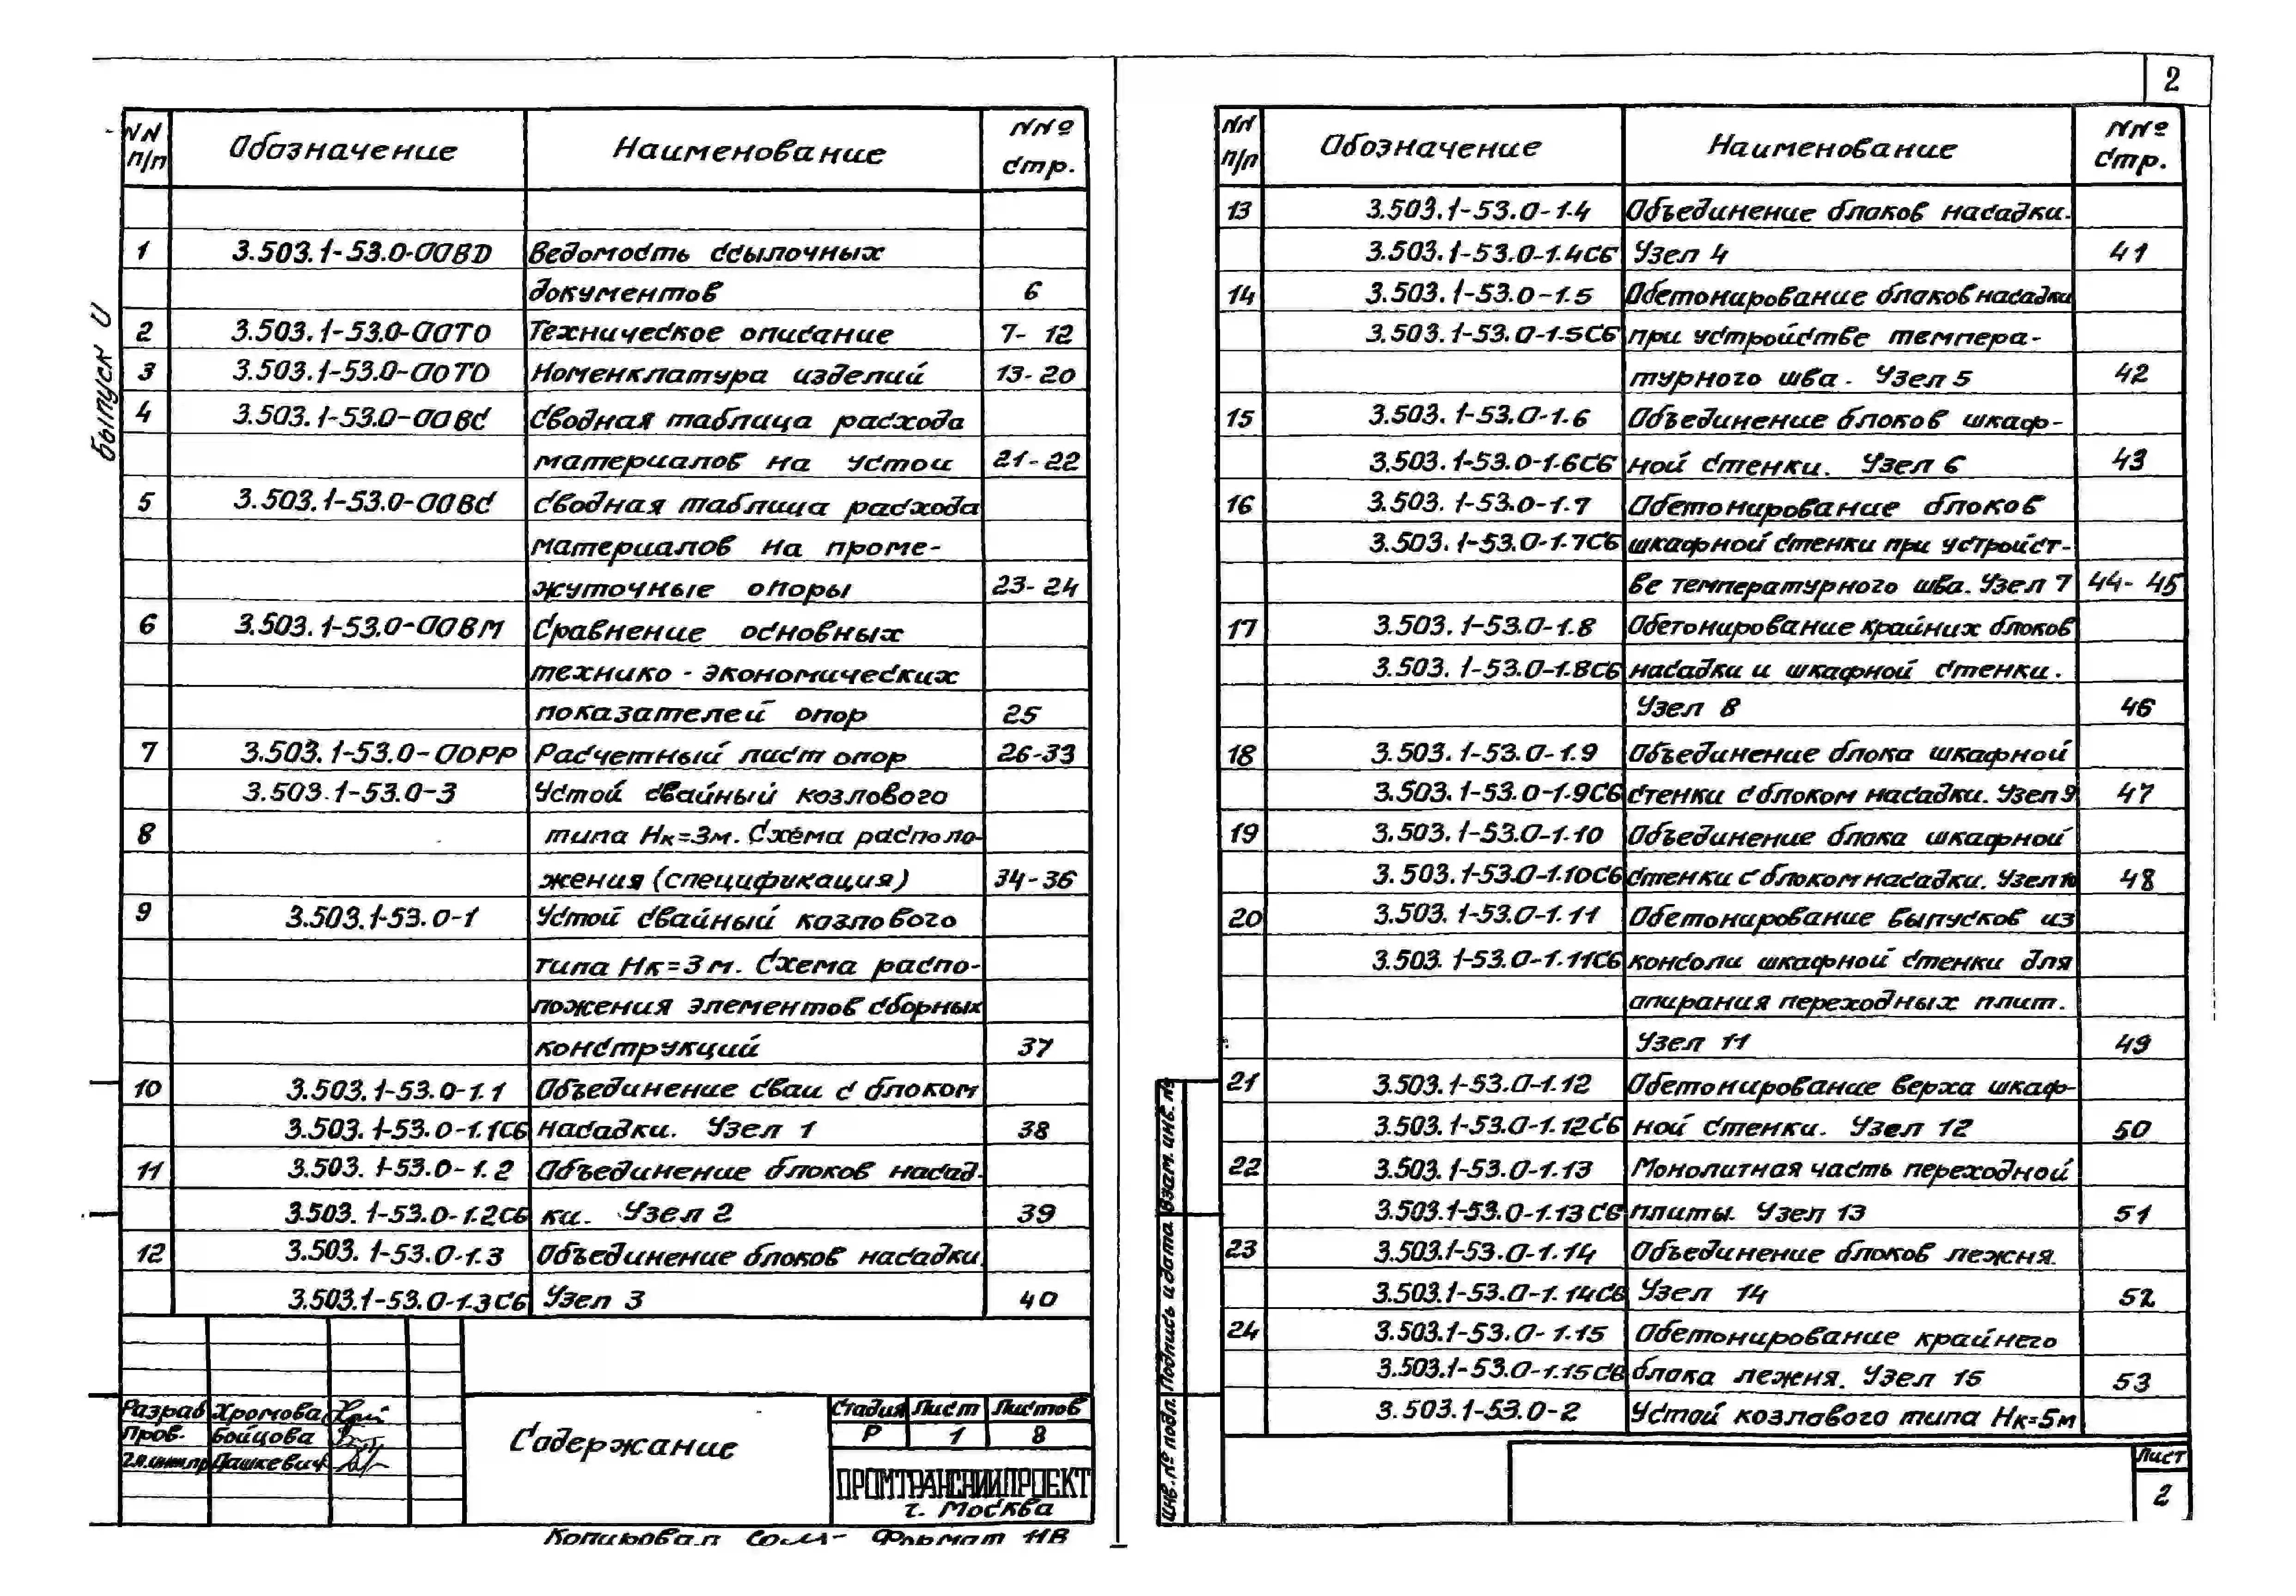 2
выпуск 0
NN п/п Обозначение Наименование NNº стр.
1 3.503.1-53.0-00ВD Ведомость ссылочных
документов 6
2 3.503.1-53.0-00ТО Техническое описание 7-12
3 3.503.1-53.0-00ТО Номенклатура изделий 13-20
4 3.503.1-53.0-00ВС Сводная таблица расхода
материалов на устои 21-22
5 3.503.1-53.0-00ВС Сводная таблица расхода
материалов на проме-
жуточные опоры 23-24
6 3.503.1-53.0-00ВМ Сравнение основных
технико-экономических
показателей опор 25
7 3.503.1-53.0-00РР Расчетный лист опор 26-33
3.503.1-53.0-3 Устой свайный козлового
8 типа Нк=3м. Схема располо-
жения (спецификация) 34-36
9 3.503.1-53.0-1 Устой свайный козлового
типа Нк=3м. Схема распо-
ложения элементов сборных
конструкций 37
10 3.503.1-53.0-1.1 Объединение сваи с блоком
3.503.1-53.0-1.1СБ насадки. Узел 1 38
11 3.503.1-53.0-1.2 Объединение блоков насад-
3.503.1-53.0-1.2СБ ки. Узел 2 39
12 3.503.1-53.0-1.3 Объединение блоков насадки.
3.503.1-53.0-1.3СБ Узел 3 40
Разраб Хромова
Пров. Бойцова
Гл.инж.пр Пашкевич
Содержание
Стадия Лист Листов
Р 1 8
ПРОМТРАНСНИИПРОЕКТ
г. Москва
Копировал Формат 11В
NN п/п Обозначение Наименование NNº стр.
13 3.503.1-53.0-1.4 Объединение блоков насадки.
3.503.1-53.0-1.4СБ Узел 4 41
14 3.503.1-53.0-1.5 Обетонирование блоков насадки
3.503.1-53.0-1.5СБ при устройстве темпера-
турного шва. Узел 5 42
15 3.503.1-53.0-1.6 Объединение блоков шкаф-
3.503.1-53.0-1.6СБ ной стенки. Узел 6 43
16 3.503.1-53.0-1.7 Обетонирование блоков
3.503.1-53.0-1.7СБ шкафной стенки при устройст-
ве температурного шва. Узел 7 44-45
17 3.503.1-53.0-1.8 Обетонирование крайних блоков
3.503.1-53.0-1.8СБ насадки и шкафной стенки.
Узел 8 46
18 3.503.1-53.0-1.9 Объединение блока шкафной
3.503.1-53.0-1.9СБ стенки с блоком насадки. Узел 9 47
19 3.503.1-53.0-1.10 Объединение блока шкафной
3.503.1-53.0-1.10СБ стенки с блоком насадки. Узел 10 48
20 3.503.1-53.0-1.11 Обетонирование выпусков из
3.503.1-53.0-1.11СБ консоли шкафной стенки для
опирания переходных плит.
Узел 11 49
21 3.503.1-53.0-1.12 Обетонирование верха шкаф-
3.503.1-53.0-1.12СБ ной стенки. Узел 12 50
22 3.503.1-53.0-1.13 Монолитная часть переходной
3.503.1-53.0-1.13СБ плиты. Узел 13 51
23 3.503.1-53.0-1.14 Объединение блоков лежня.
3.503.1-53.0-1.14СБ Узел 14 52
24 3.503.1-53.0-1.15 Обетонирование крайнего
3.503.1-53.0-1.15СБ блока лежня. Узел 15 53
3.503.1-53.0-2 Устой козлового типа Нк=5м
Инв.№ подл. Подпись и дата Взам. инв. №
Лист
2